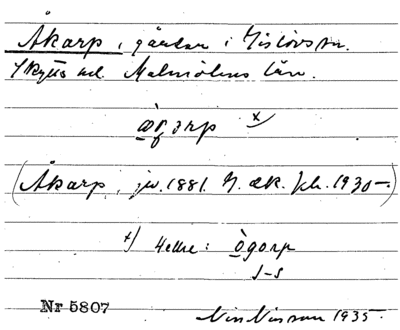 Åkarp, gårdar i Gislövs sn.
Skytts hd. Malmöhus län.
x)
(Åkarp, jw. 1881. G. ek. kh. 1930-.)
x) Hellre: ògorp
s-s
Nr 5807
Nils Nilsson 1935.